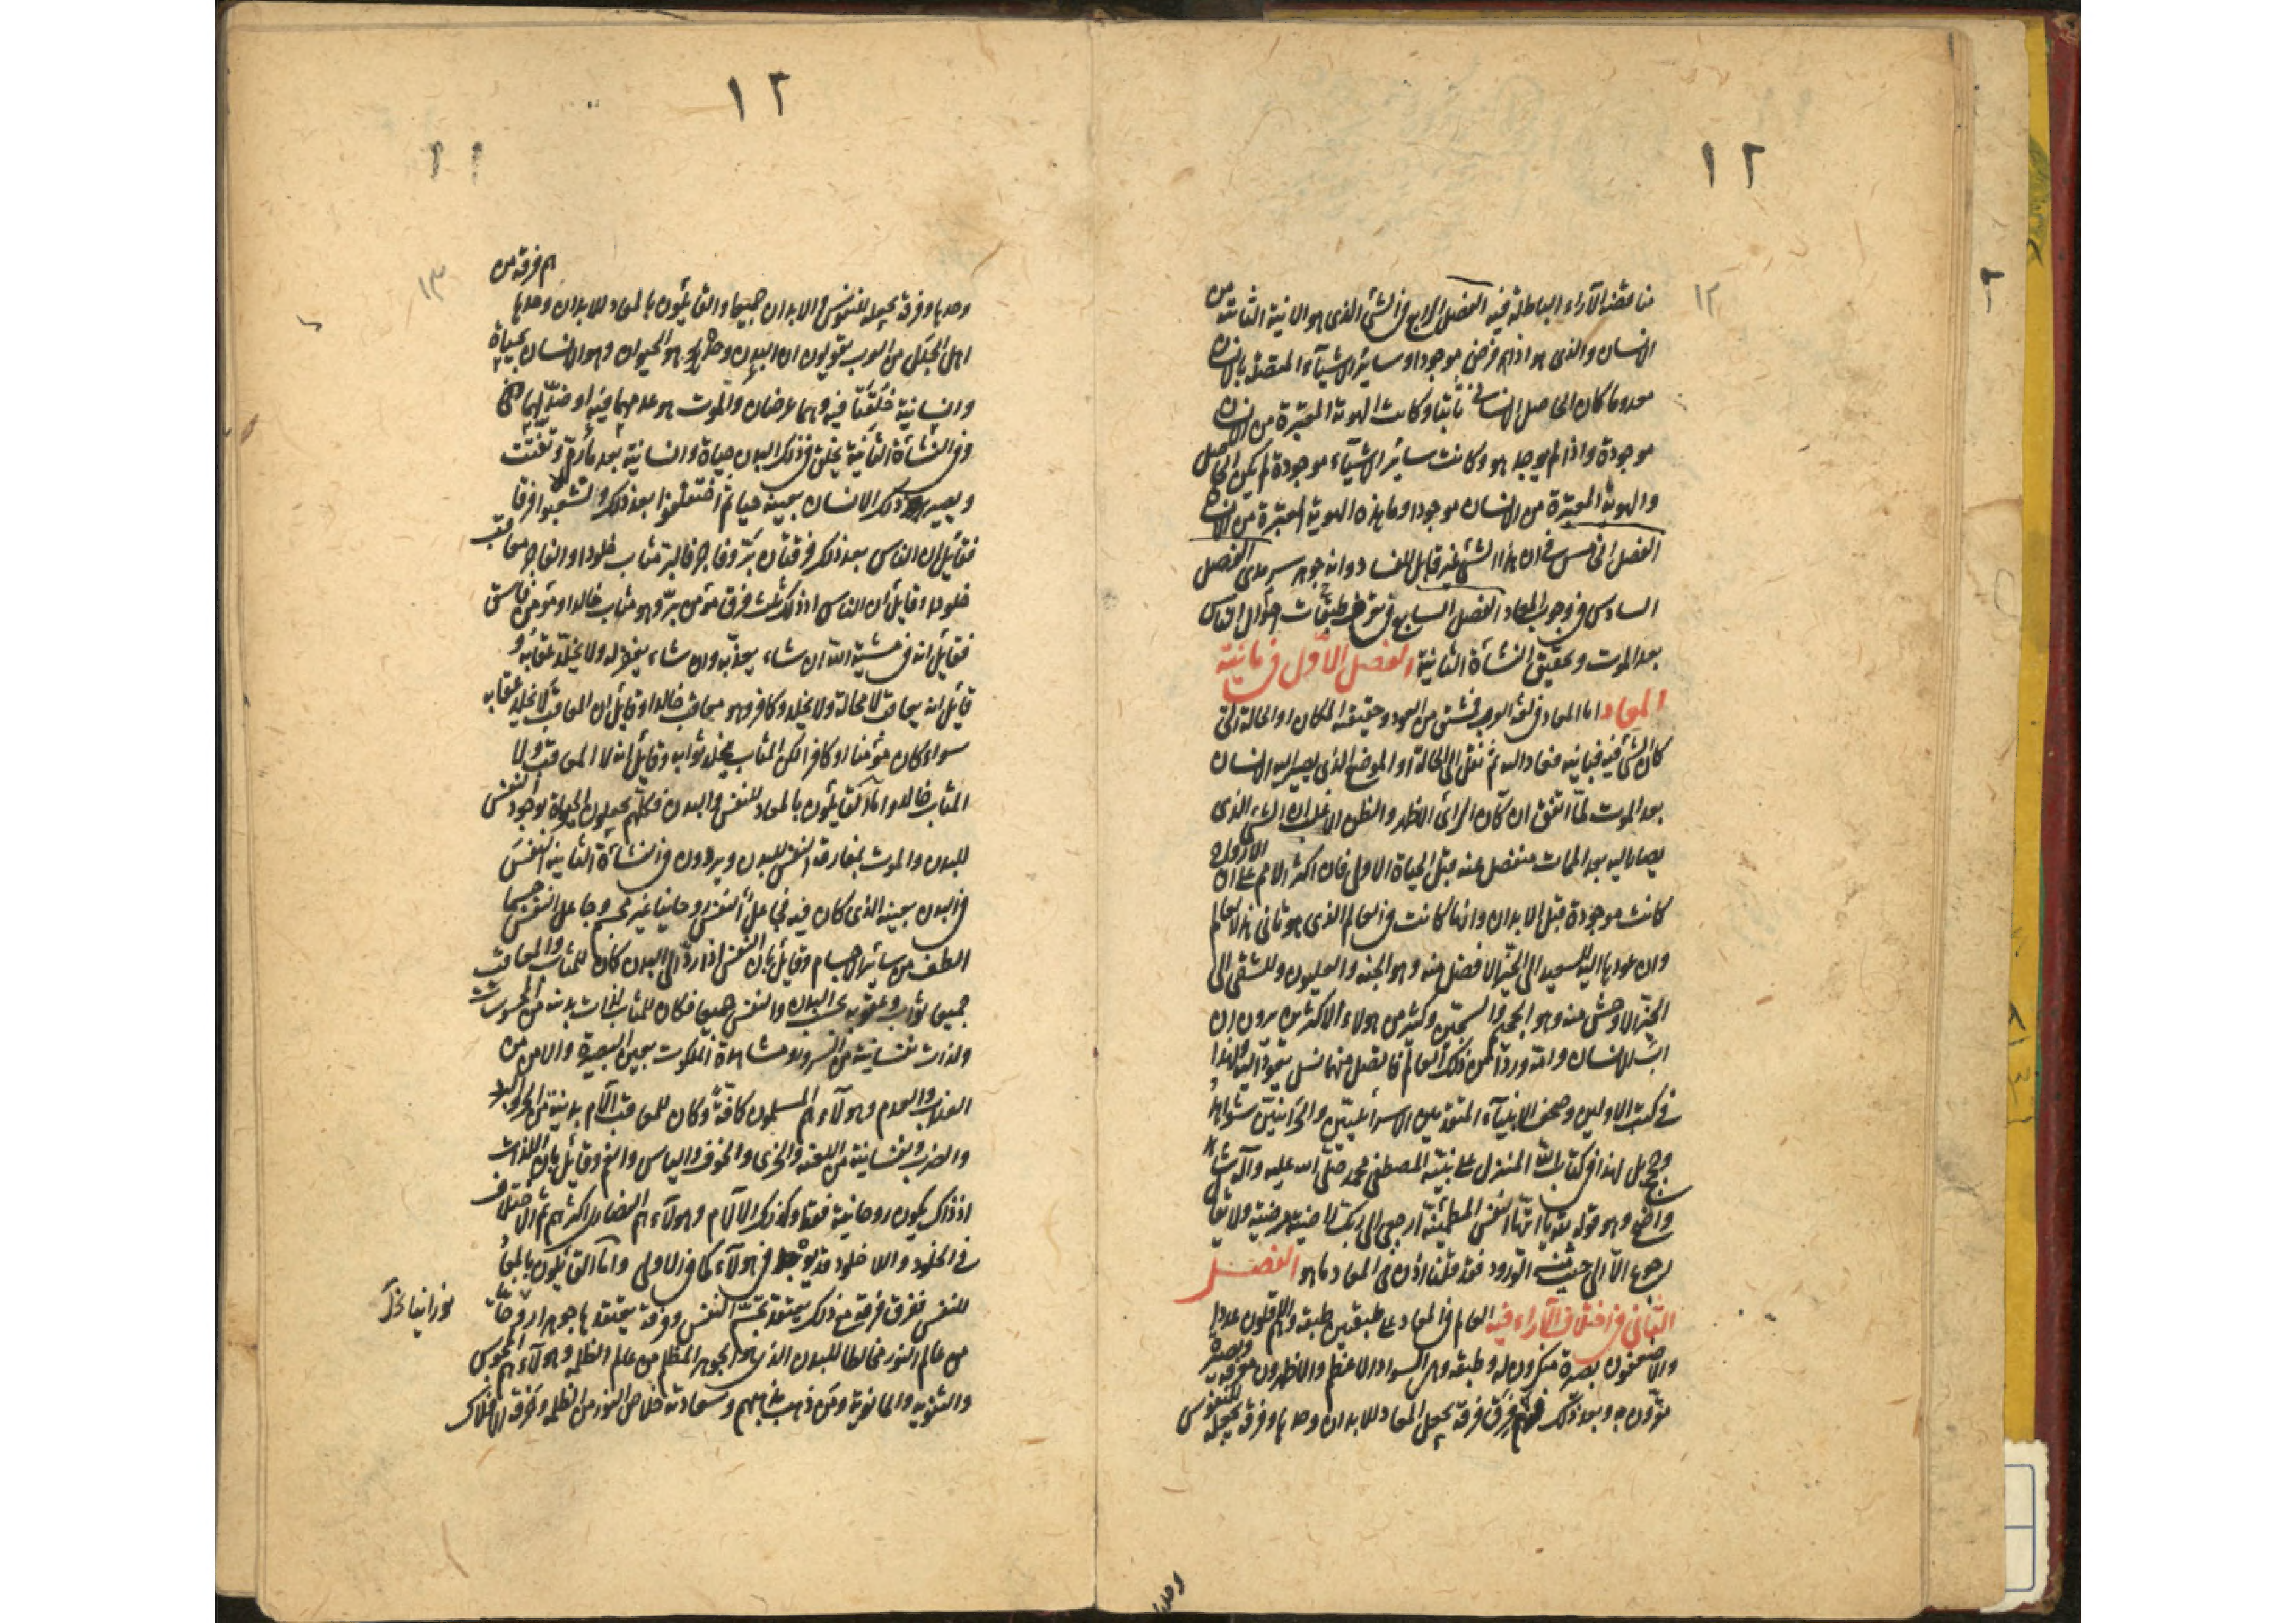 ١٢
١٢
مناقضة الآراء الباطلة فيه الفصل الرابع في الشئ الذى هو الانية الثابتة من
الانسان والذى هو اذا فرض موجودا وسائر الاشيآء المتصلة بالانسان
معدوما كان الحاصل الانسانى ثابتا وكانت الهوية المعتبرة من الانسان
موجودة واذا لم يوجد هو وكانت سائر الاشيآء موجودة لم يكن الحاصل
والهوية المعتبرة من الانسان موجودا وما هذه الهوية المعتبرة من الانسان
الفصل الخامس في ان هذا الشئ غير قابل للفساد وانه جوهر سرمدى الفصل
السادس في وجوب المعاد الفصل السابع في طبقات احوال الناس
بعد الموت وتحقيق النشأة الثانية الفصل الاول في مائية
المعاد اما المعاد في لغة العرب فمشتق من العود وحقيقته المكان او الحالة التى
كان الشئ فيه فباينه فعاد اليه ثم نقل الى الحالة او الموضع الذى يصير اليه الانسان
بعد الموت لما اتفق ان كان الرأى الاظهر والظن الاغلب ان الشئ الذى
يصار اليه بعد الممات منفصل عنه قبل الحياة الاولى فان اكثر الامم على ان الارواح
كانت موجودة قبل الابدان وانها كانت في العالم الذى هو ثانى هذا العالم
وان عودها اليه للسعيد الى الحيز الافضل منه وهو الجنة والعليون وللشقى الى
الحيز الاوحش منه وهو الجحيم والسجين وكثير من هولاء الاكثرين يرون ان
اب الانسان وامه وردا من ذلك العالم فاتصل منهما نسل يعود اليه ولهذا
في كتب الاولين وصحف الانبيآء المتقدمين الاسرائيليين والحرانيين شواهد
ويجمل لهذا في كتاب الله المنزل على نبيه المصطفى محمد صلى الله عليه وآله شاهد
واضح وهو قوله تع يا ايتها النفس المطمئنة ارجعى الى ربك راضية مرضية ولا يقال
رجوع الا الى حيث منه الورود فقد قلنا اذن في المعاد ما هو الفصل
الثانى في اختلاف الآراء فيه العالم في المعاد على طبقتين طبقة وهم الاقلون عددا
والاضعفون بصيرة منكرون له وطبقة وهم السواد الاعظم والاظهرون معرفة وبصيرة
مقرون به وبعد ذلك فهم فرق فرقة تجعل المعاد للابدان وحدها وفرقة تجعله للنفوس
وحدها
١٢
١١
١٣
هم فرقة من
وحدها وفرقة تجعله للنفوس والابدان جميعا والقائلون بالمعاد للابدان وحدها
اهل الجدل من العرب يقولون ان البدن وحده هو الحيوان وهو الانسان بحياة
وانسانية خلقتا فيه وهما عرضان والموت هو عدمهما فيه او ضد لهما
وفي النشأة الثانية يخلق في ذلك البدن حياة وانسانية بعد ما رم وتفتت
ويصير ذلك الانسان بعينه حيا ثم اختلفوا بعد ذلك وتشعبوا فرقا
فقائل ان الناس بعد ذلك فرقتان بر وفاجر فالبر مثاب خلودا والفاجر معاقب
خلودا وقائل ان الناس اذ ذلك ثلث فرق مؤمن بر وهو مثاب خالدا ومؤمن فاسق
فقائل انه في مشية الله ان شاء يعذبه وان شاء يغفر له ولا يخلد عقابه و
قائل انه يعاقب لا محالة ولا يخلد وكافر وهو معاقب خالدا وقائل ان المعاقب لا يخلد عقابه
سواء كان مؤمنا او كافرا لكن المثاب يخلد ثوابه وقائل انه لا المعاقب ولا
المثاب خالد واما القائلون بالمعاد للنفس والبدن فكلهم يجعلون الحياة بوجود النفس
للبدن والموت بمفارقة النفس للبدن ويردون في النشأة الثانية النفس
في البدن بعينه الذى كان فيه فجاعل النفس روحانيا غير جسم وجاعل النفس جسما
الطف من سائر الاجسام وقائل بان النفس اذا رد الى البدن كان للمثاب والمعاقب
جميعا ثواب وعقوبة بحسب البدن والنفس جميعا فكان للمثاب لذات بدنية من المحسوسات
ولذات نفسانية من السرور ومشاهدة الملكوت بعين البصيرة والامن من
العذاب والعدم وهولآء هم المسلمون كافة وكان للمعاقب آلام بدنية من الحر والبرد
والضرب ونفسانية من اللعنة والخزى والخوف والياس والغم وقائل بان اللذات
اذ ذاك يكون روحانية فقط وكذلك الآلام وهولآء هم النصارى اكثرهم ثم الاختلاف
في الخلود واللا خلود قد يوجد في هولآء كما في الاولى واما القائلون بالمعاد
للنفس ففرق فرقة من ذلك يعتقد تجسم النفس وفرقة يعتقدها جوهرا روحانيا
نورانيا
من عالم النور مخالطا للبدن الذى هو الجوهر المظلم من عالم الظلمة وهولآء هم المجوس
والثنوية والمانوية ومن ذهب مذهبهم وسعادته خلاص النور من الظلمة وخرقه الافلاك